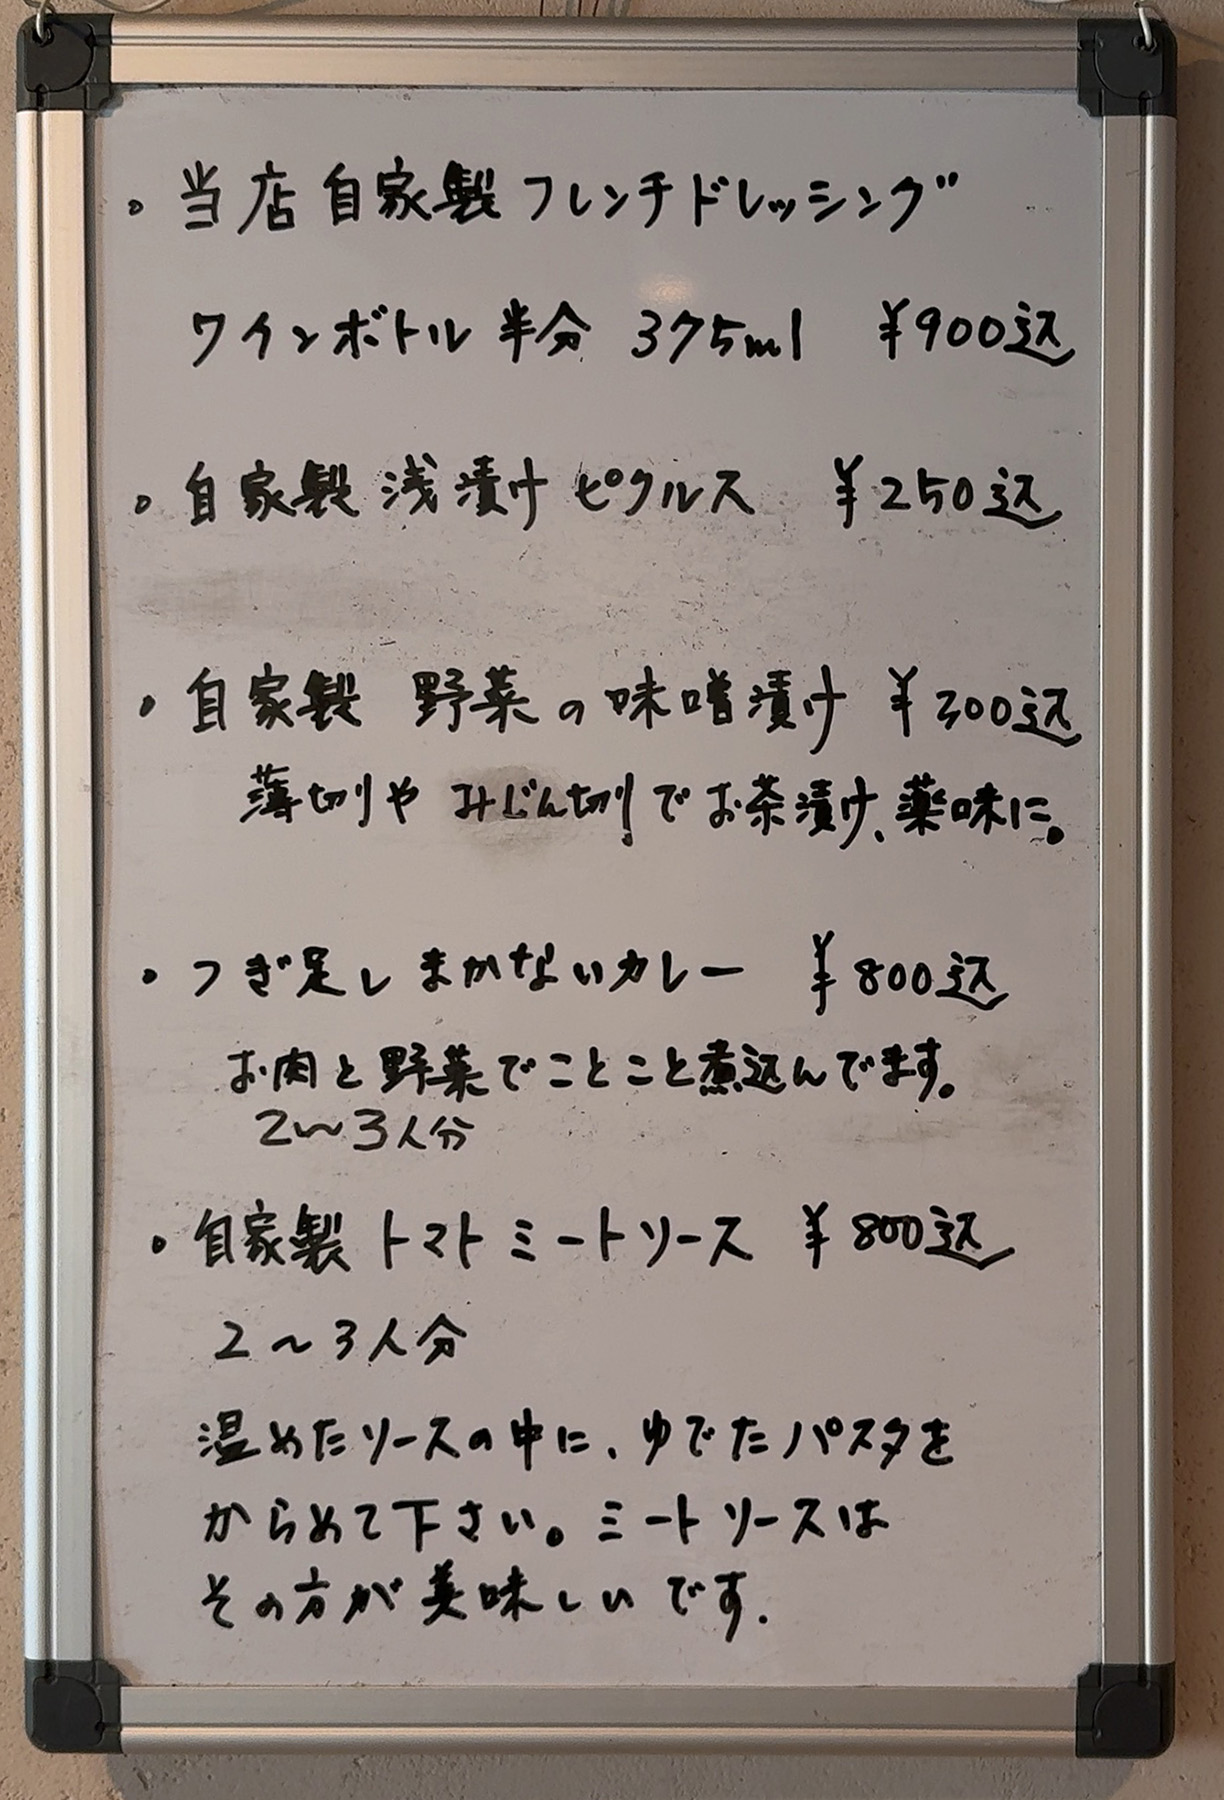 ・当店自家製フレンチドレッシング
ワインボトル半分 375ml ¥900込
・自家製 浅漬け ピクルス ¥250込
・自家製 野菜の味噌漬け ¥300込
薄切りや みじん切りでお茶漬け、薬味に。
・つぎ足し まかないカレー ¥800込
お肉と野菜でことこと煮込んでます。
2〜3人分
・自家製 トマトミートソース ¥800込
2〜3人分
温めたソースの中に、ゆでたパスタを
からめて下さい。ミートソースは
その方が美味しいです.